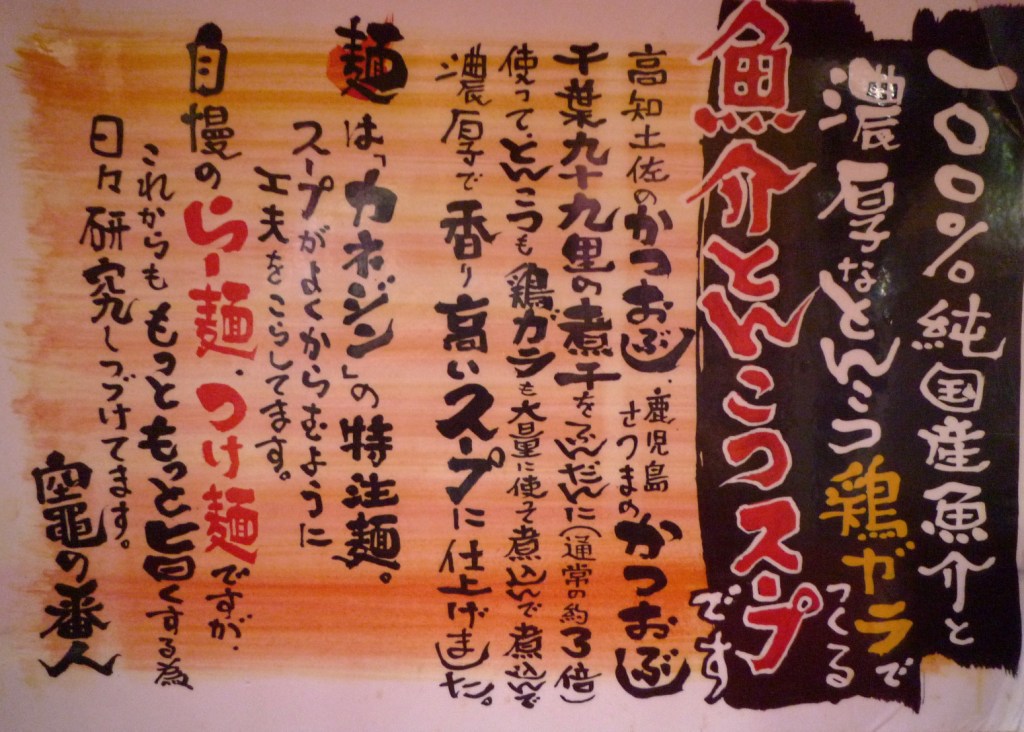 一〇〇％純国産魚介と
濃厚なとんこつ鶏ガラで
つくる
魚介とんこつスープ
です
高知土佐のかつおぶし、鹿児島さつまのかつおぶし
千葉九十九里の煮干をふんだんに(通常の約3倍)
使って、とんこつも鶏ガラも大量に使って煮込んで煮込んで
濃厚で香り高いスープに仕上げました。
麺は「カネジン」の特注麺。
スープがよくからむように
工夫をこらしてます。
自慢のらー麺、つけ麺ですが、
これからももっともっと旨くする為
日々研究しつづけてます。
竈の番人